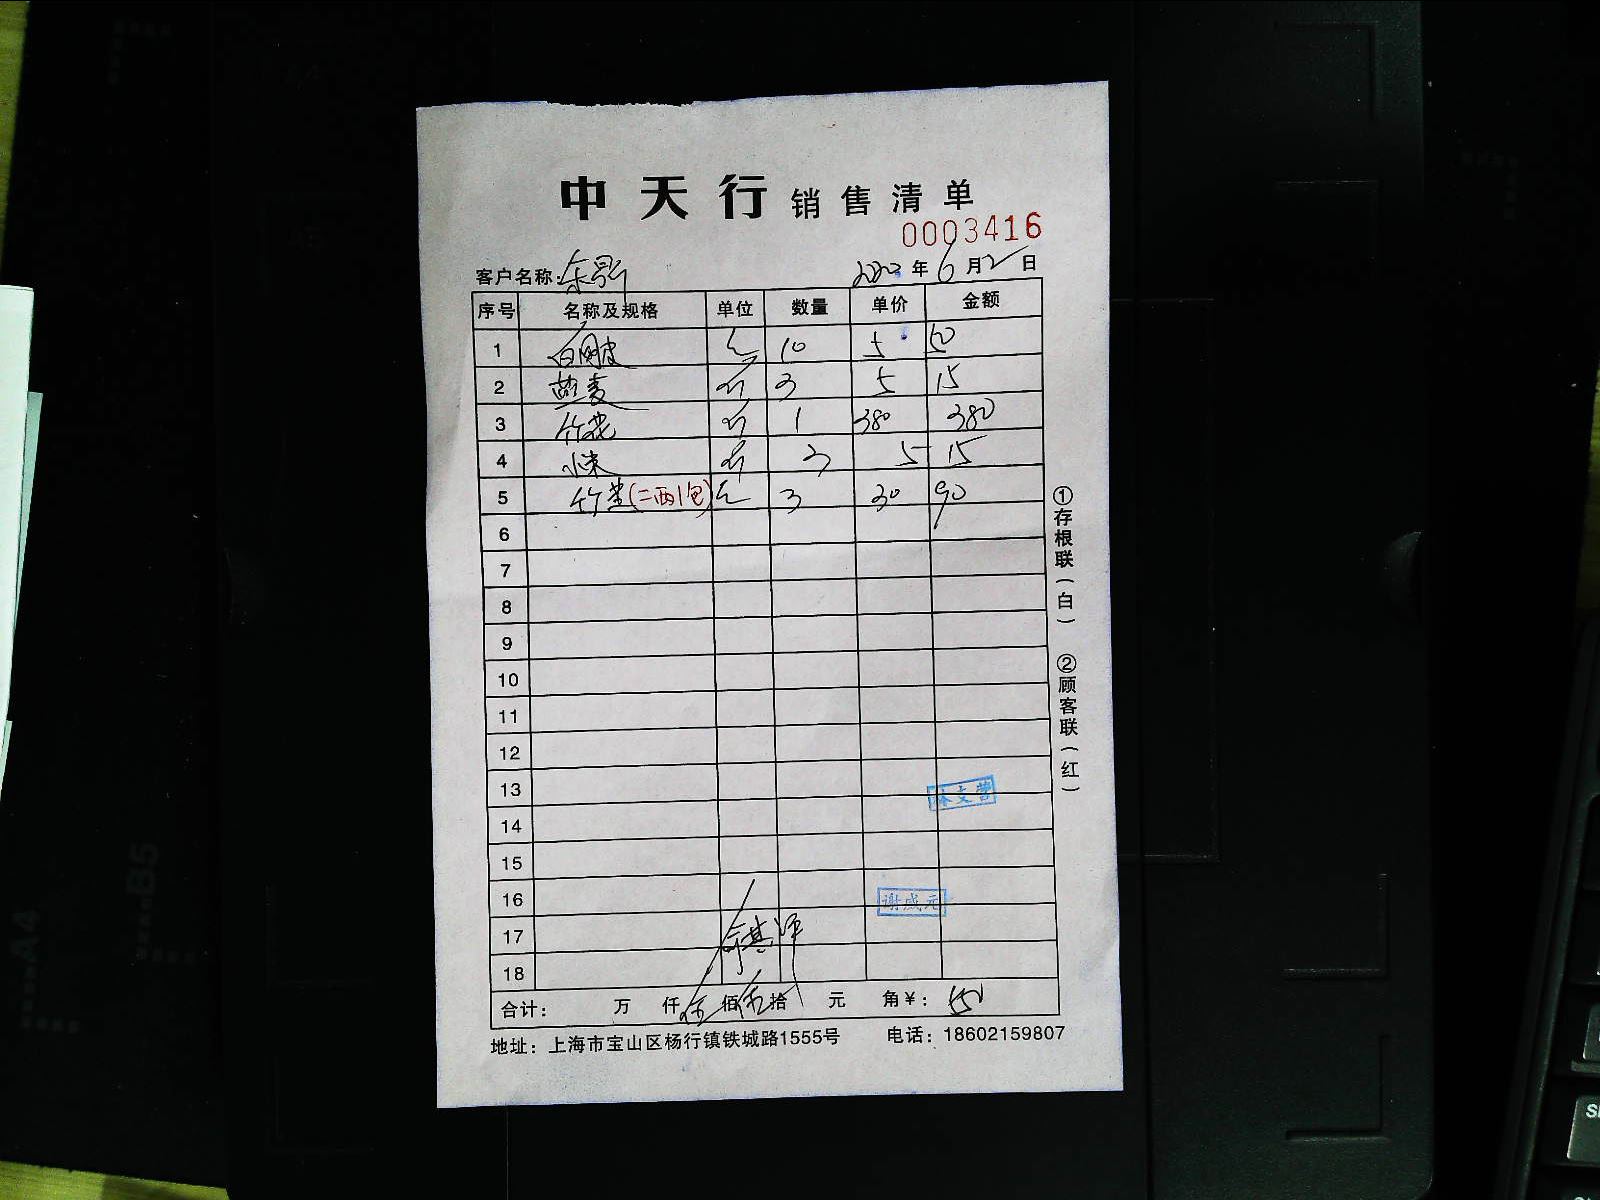 中天行 销售清单
0003416
客户名称: 年6月2日
序号 名称及规格 单位 数量 单价 金额
1 10 5 50
2 燕麦 3 5 15
3 竹荪 1 380 380
4 小米 3 5 15
5 (二两1包) 3 30 90
6
7
8
9
10
11
12
13
14
15
16 谢成元
17
18
合计: 万 仟 伍 佰 伍 拾 元 角¥: 550
地址: 上海市宝山区杨行镇铁城路1555号 电话: 18602159807
①存根联(白) ②顾客联(红)